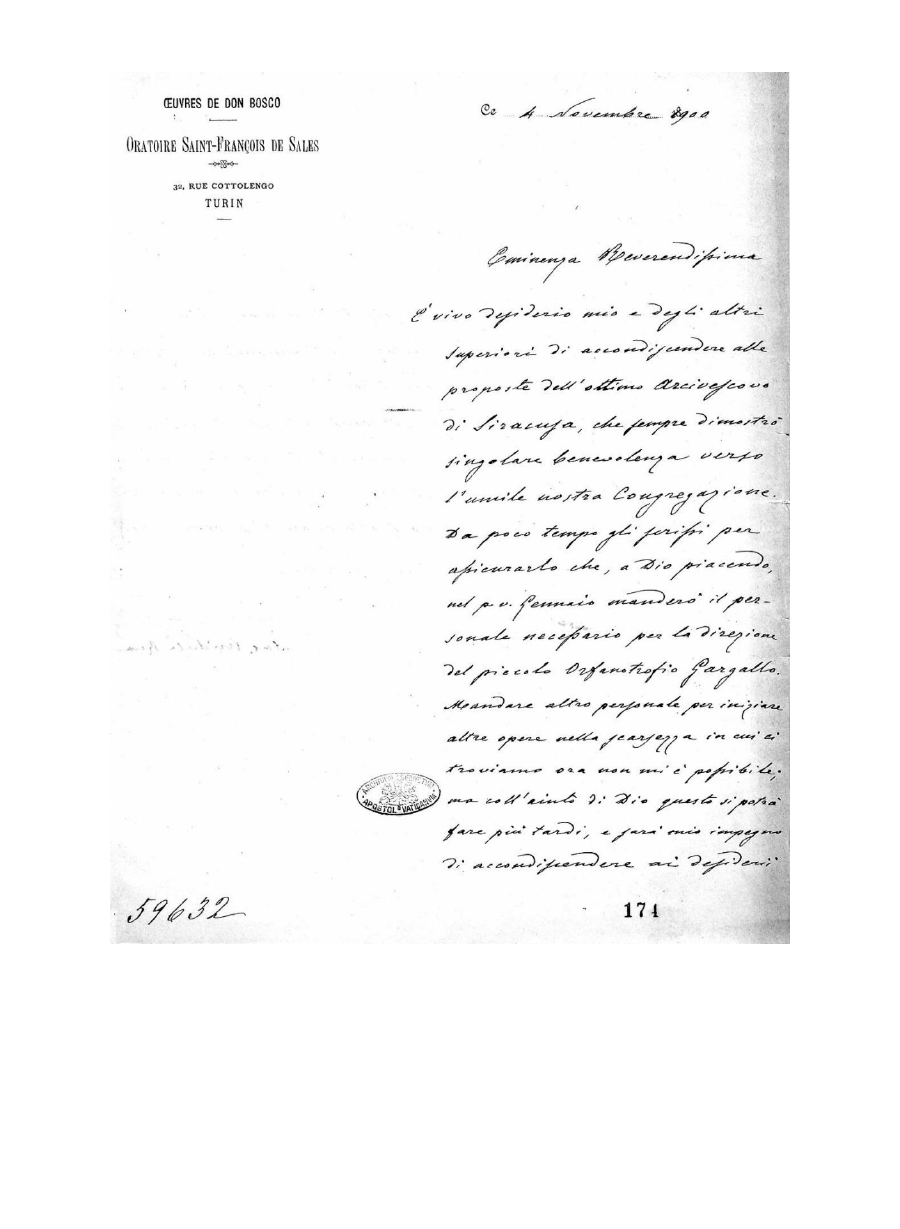 ŒUVRES DE DON BOSCO
ORATOIRE SAINT-FRANÇOIS DE SALES
32, RUE COTTOLENGO
TURIN
Ce 4 Novembre 1900
Eminenza Reverendissima
È vivo desiderio mio e degli altri
superiori di accondiscendere alle
proposte dell'ottimo Arcivescovo
di Siracusa, che sempre dimostrò
singolare benevolenza verso
l'umile nostra Congregazione.
Da poco tempo gli scrissi per
assicurarlo che, a Dio piacendo,
nel p. v. Gennaio manderò il per-
sonale necessario per la direzione
del piccolo Orfanotrofio Gargallo.
Mandare altro personale per iniziare
altre opere nella scarsezza in cui ci
troviamo ora non mi è possibile;
ma coll'aiuto di Dio questo si potrà
fare più tardi, e sarà mio impegno
di accondiscendere ai desiderii
APOSTOL. VATICANUM
59632
174